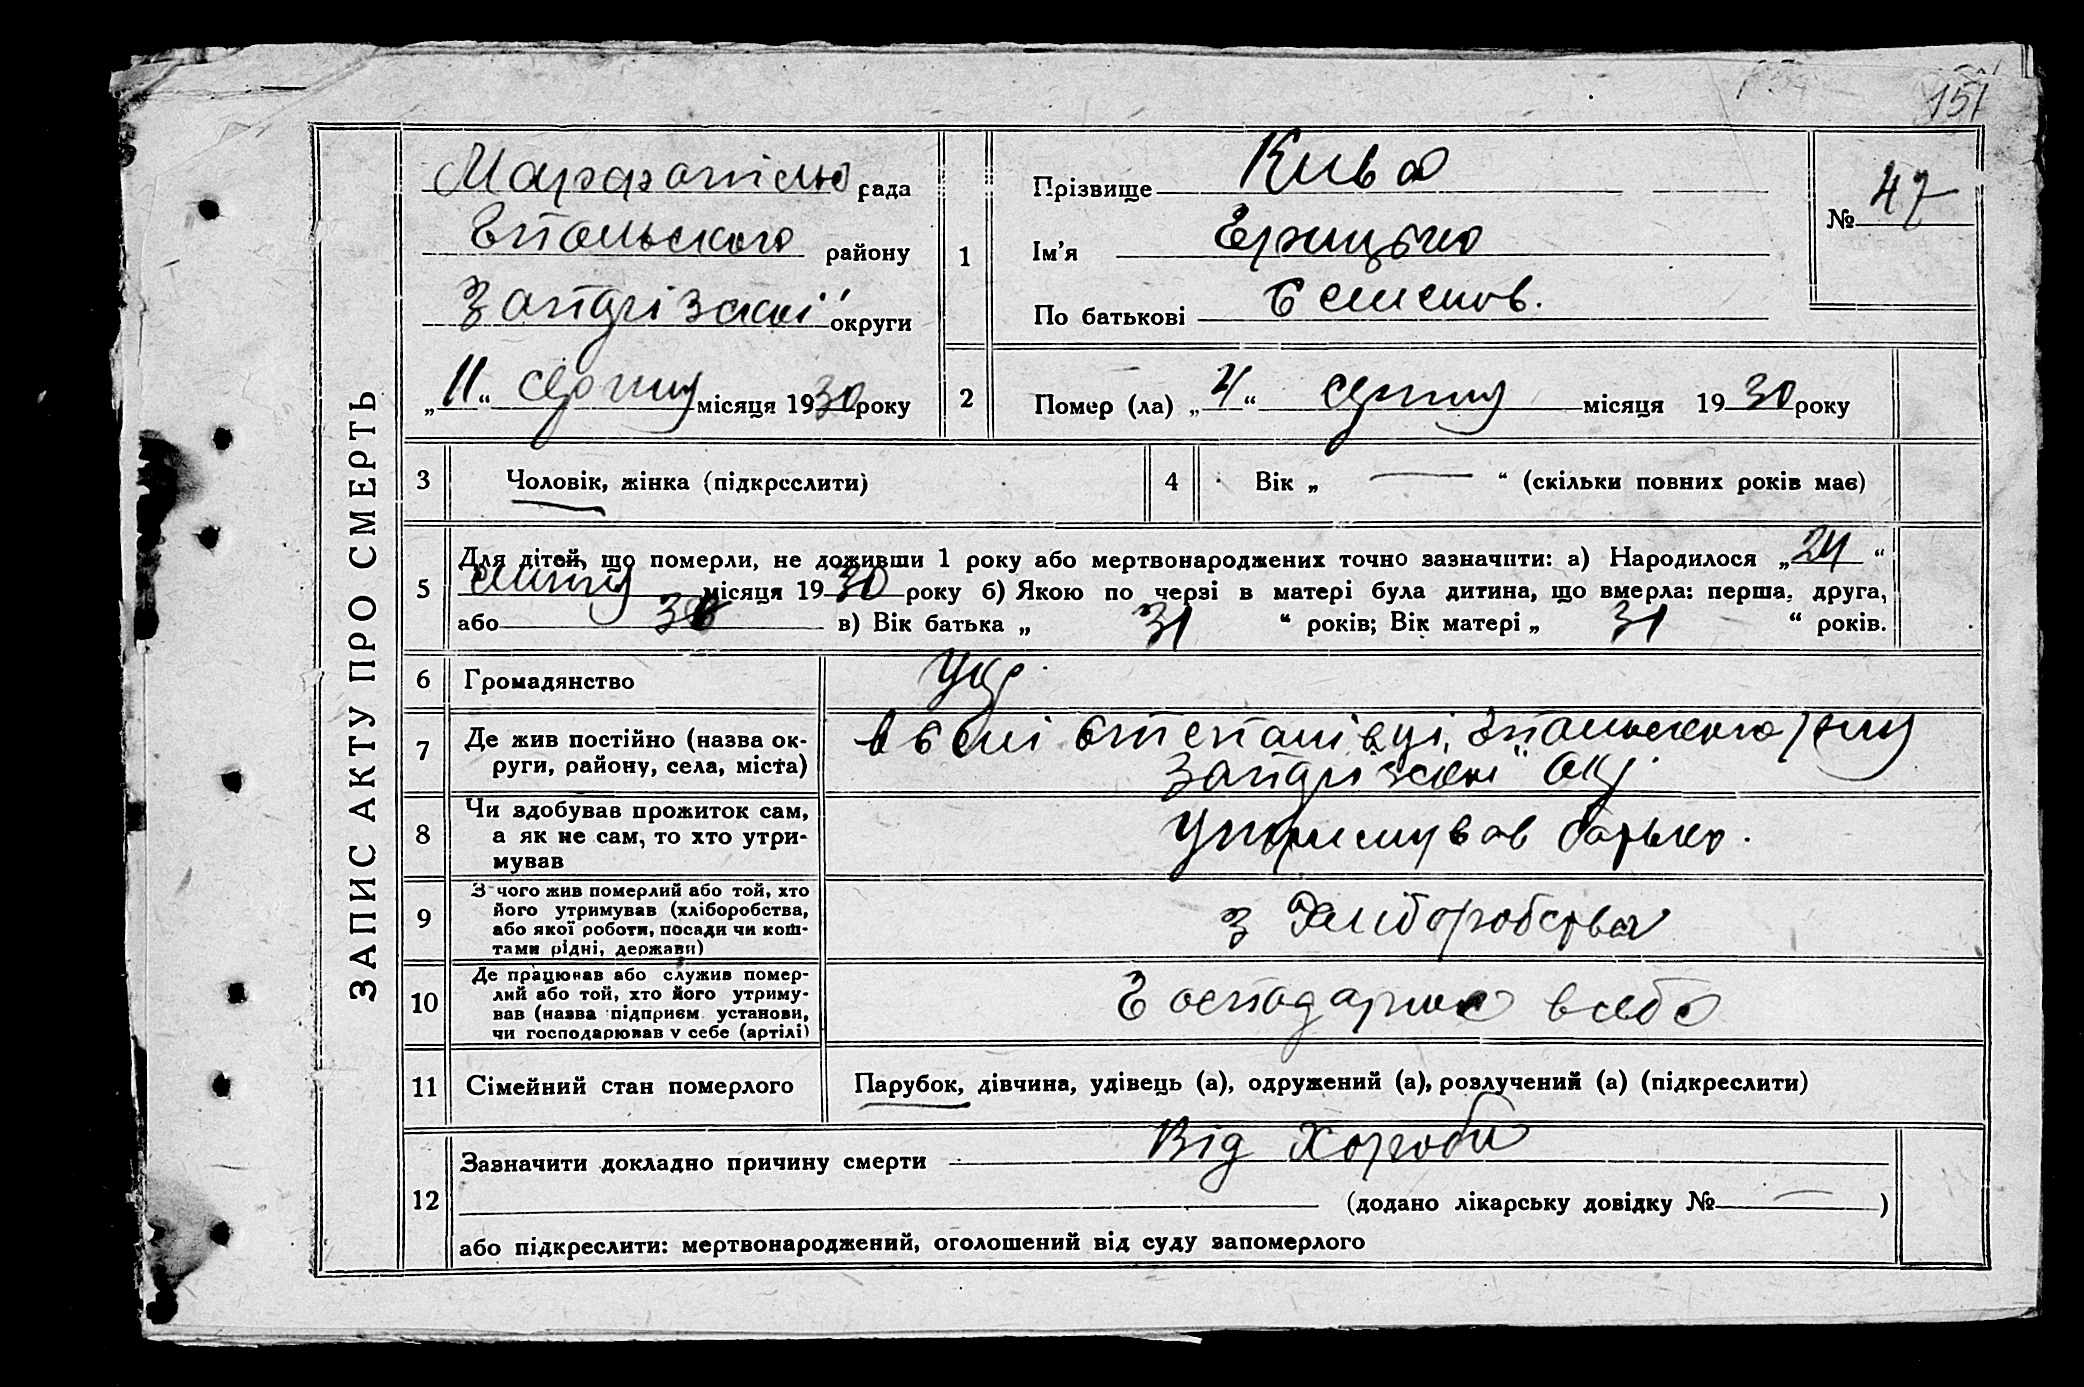 151
ЗАПИС АКТУ ПРО СМЕРТЬ
рада
району
округи
„11“ серпня місяця 1930 року
1
Прізвище Кива
Ім'я Грицько
По батькові Семенов.
№ 47
2
Помер (ла) „4“ серпня місяця 1930 року
3
Чоловік, жінка (підкреслити)
4
Вік „ — “ (скільки повних років має)
5
Для дітей, що померли, не доживши 1 року або мертвонароджених точно зазначити: а) Народилося „24“
липня місяця 1930 року б) Якою по черзі в матері була дитина, що вмерла: перша, друга,
або в) Вік батька „31“ років; Вік матері „31“ років.
6
Громадянство
Укр.
7
Де жив постійно (назва ок-
руги, району, села, міста)
в селі Степанівці,
Окр.
8
Чи здобував прожиток сам,
а як не сам, то хто утри-
мував
утримував батько.
9
З чого жив померлий або той, хто
його утримував (хліборобства,
або якої роботи, посади чи кош-
тами рідні, держави)
з хліборобства
10
Де працював або служив помер-
лий або той, хто його утриму-
вав (назва підприєм. установи,
чи господарював у себе (артілі)
в себе
11
Сімейний стан померлого
Парубок, дівчина, удівець (а), одружений (а), розлучений (а) (підкреслити)
12
Зазначити докладно причину смерти Від хороби
(додано лікарську довідку № — )
або підкреслити: мертвонароджений, оголошений від суду запомерлого